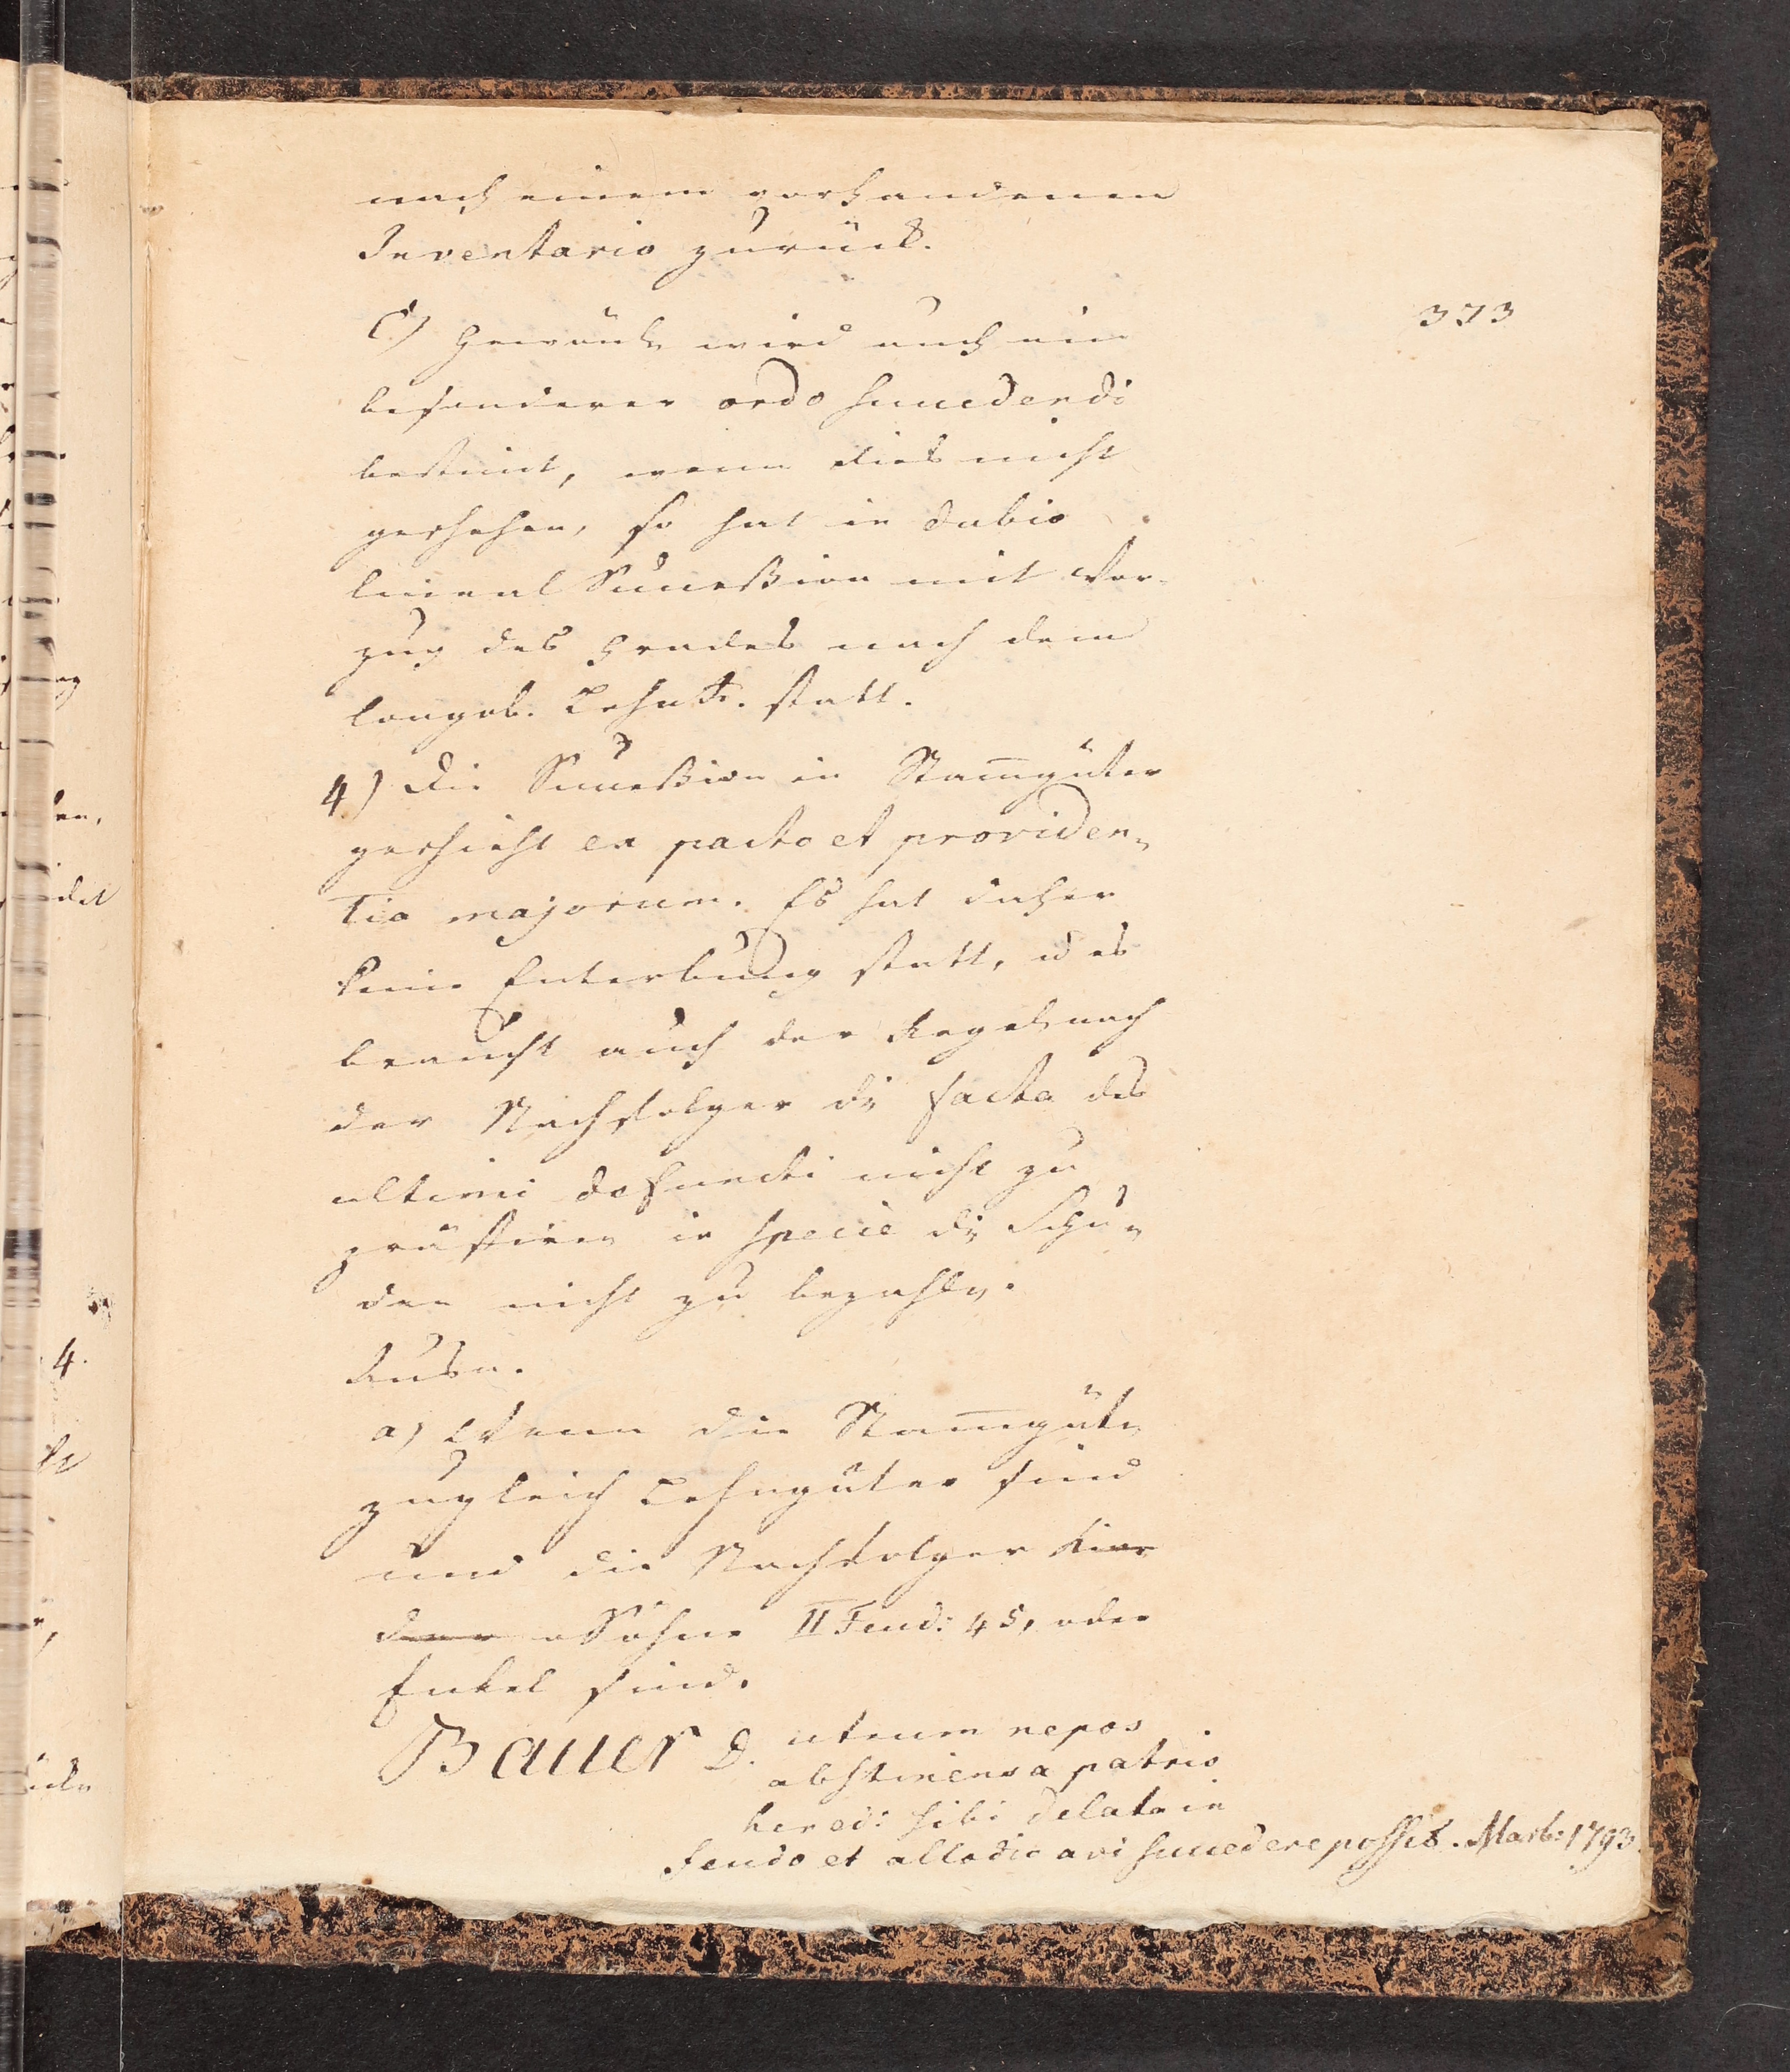 nach einem vorhandenen
Inventario zurück.
373
C) Hierauch wird auch ein
besonderer ordo succedendi
bestimt, wenn dies nicht
geschehen, so hat in dubio
lineal Succeßion mit Vor-
zug des Grades nach dem
longob. LehnR. statt.
4) Die Succeßion in Stam̄güter
geschieht ex pacto et providen-
tia majorum. Es hat daher
keine Enterbung statt, u es
braucht auch der Regel nach
der Nachfolger die facta des
ultimi defuncti nicht zu
prästiren in specie die Schul-
den nicht zu bezahlen.
Ausn.
a) Wenn die Stam̄güter
zugleich Lehngüter sind
und die Nachfolger Kin-
der Söhne II Feud: 45, oder
Enkel sind.
Bauer D. utrum nepos
abstinens a patris
hered: sibi delata in
feudo et allodio avi succedere possit. Marb: 1793.